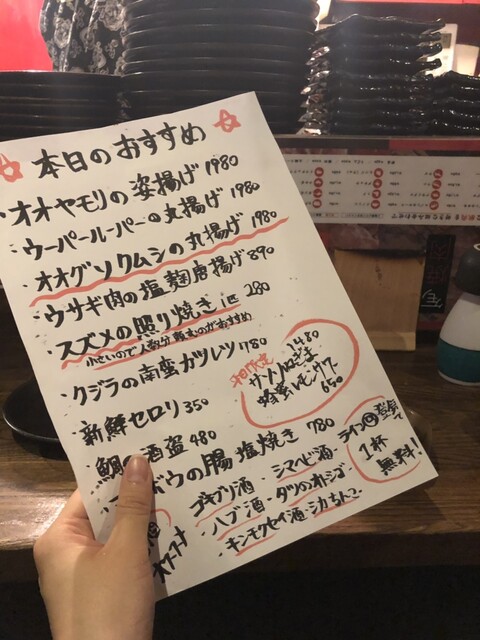 本日のおすすめ
・オオヤモリの姿揚げ 1980
・ウーパールーパーの丸揚げ 1980
・オオグソクムシの丸揚げ 1980
・ウサギ肉の塩麹唐揚げ 890
・スズメの照り焼き 1匹 280
小さいので人数分頼むのがおすすめ
・クジラの南蛮カツレツ 780
・新鮮セロリ 350
酒盗 480
ボウの腸塩焼き 780
平日限定
1480
蜂蜜レモンサワー
650
ライン@登録で
1杯
無料!
ゴキブリ酒・シマヘビ酒・
・ハブ酒・タツノオトシゴ・
・キンモクセイ酒・シカちんこ・